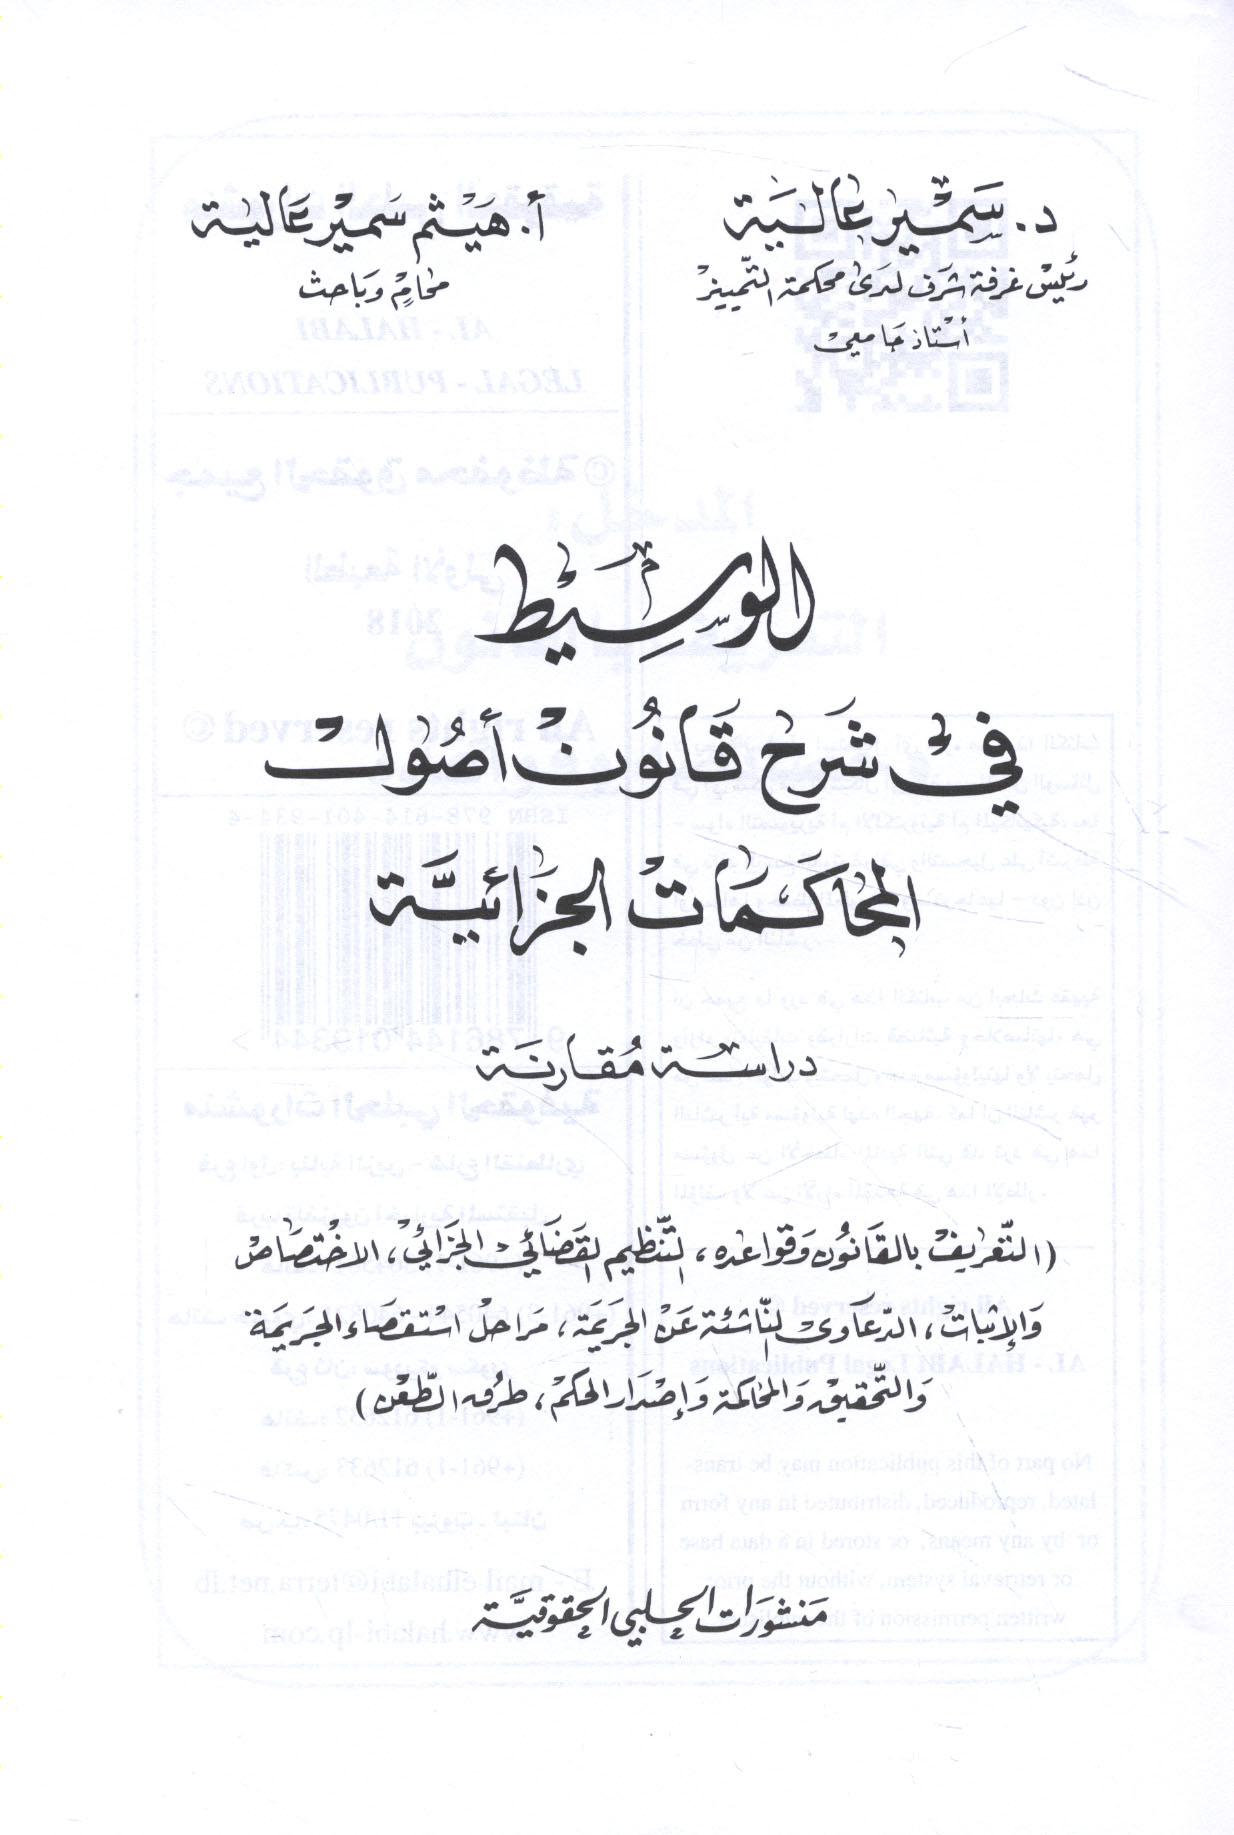 د. سَمْير عَالِيَة
رئيس غرفة شرف لدى محكمة التمييز
أستاذ جامعي
أ. هَيْثم سَمير عَالية
محامٍ وَبَاحث
الوسيط
في شَرح قَانُون أصُول
المحَاكَمَات الجزَائيَّة
دراسَة مُقَارنَة
(التّعريف بالقَانُون وَقواعده، التّنظيم القَضَائي الجزَائي، الاختصَاص
وَالإثبات، الدّعَاوى النّاشئة عَن الجريمَة، مراحل استقصَاء الجريمَة
وَالتّحقيق وَالمحَاكمة وَإصْدَار الحكم، طرُق الطّعْن)
مَنشورَات الحلبي الحقوقيَّة